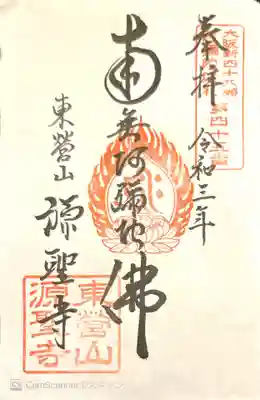 奉拝 令和三年
大阪新四十八願所
第四十三番
南無阿弥陀佛
東營山 源聖寺
東營山
源聖寺
CamScanner